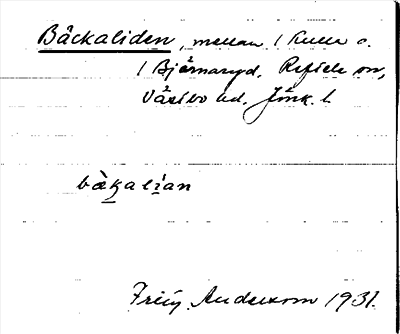 Bäckaliden, mellan 1 Kulla o.
1 Bjärnaryd, Reftele sn,
Västbo hd, Jönk. l.
bàkalìan
Frith. Anderson 1931.